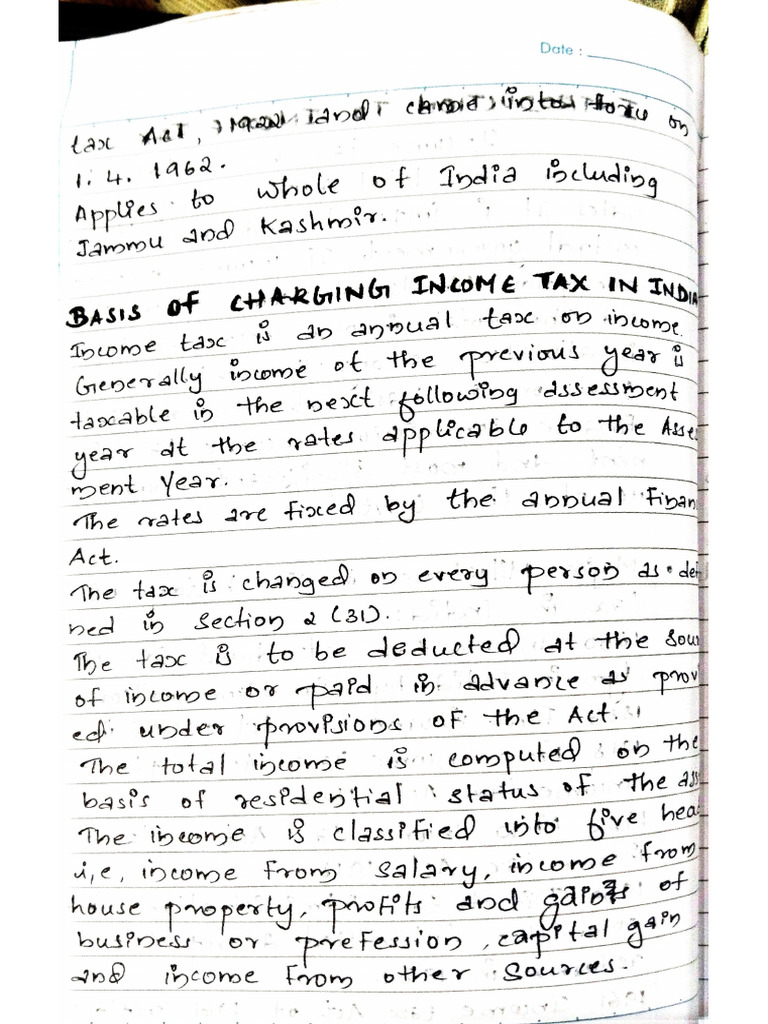 Date :
tax Act, 1922 and came into force on
1. 4. 1962.
Applies to whole of India including
Jammu and Kashmir.
BASIS OF CHARGING INCOME TAX IN INDIA
Income tax is an annual tax on income.
Generally income of the previous year is
taxable in the next following assessment
year at the rates applicable to the Asse
ment Year.
The rates are fixed by the annual Finan
Act.
The tax is changed on every person as de
ned in section 2 (31).
The tax is to be deducted at the sou
of income or paid in advance as prov
ed under provisions of the Act.
The total income is computed on the
basis of residential status of the ass
The income is classified into five hea
i,e, income from salary, income from
house property, profits and gains of
business or prefession, capital gain
and income from other sources.